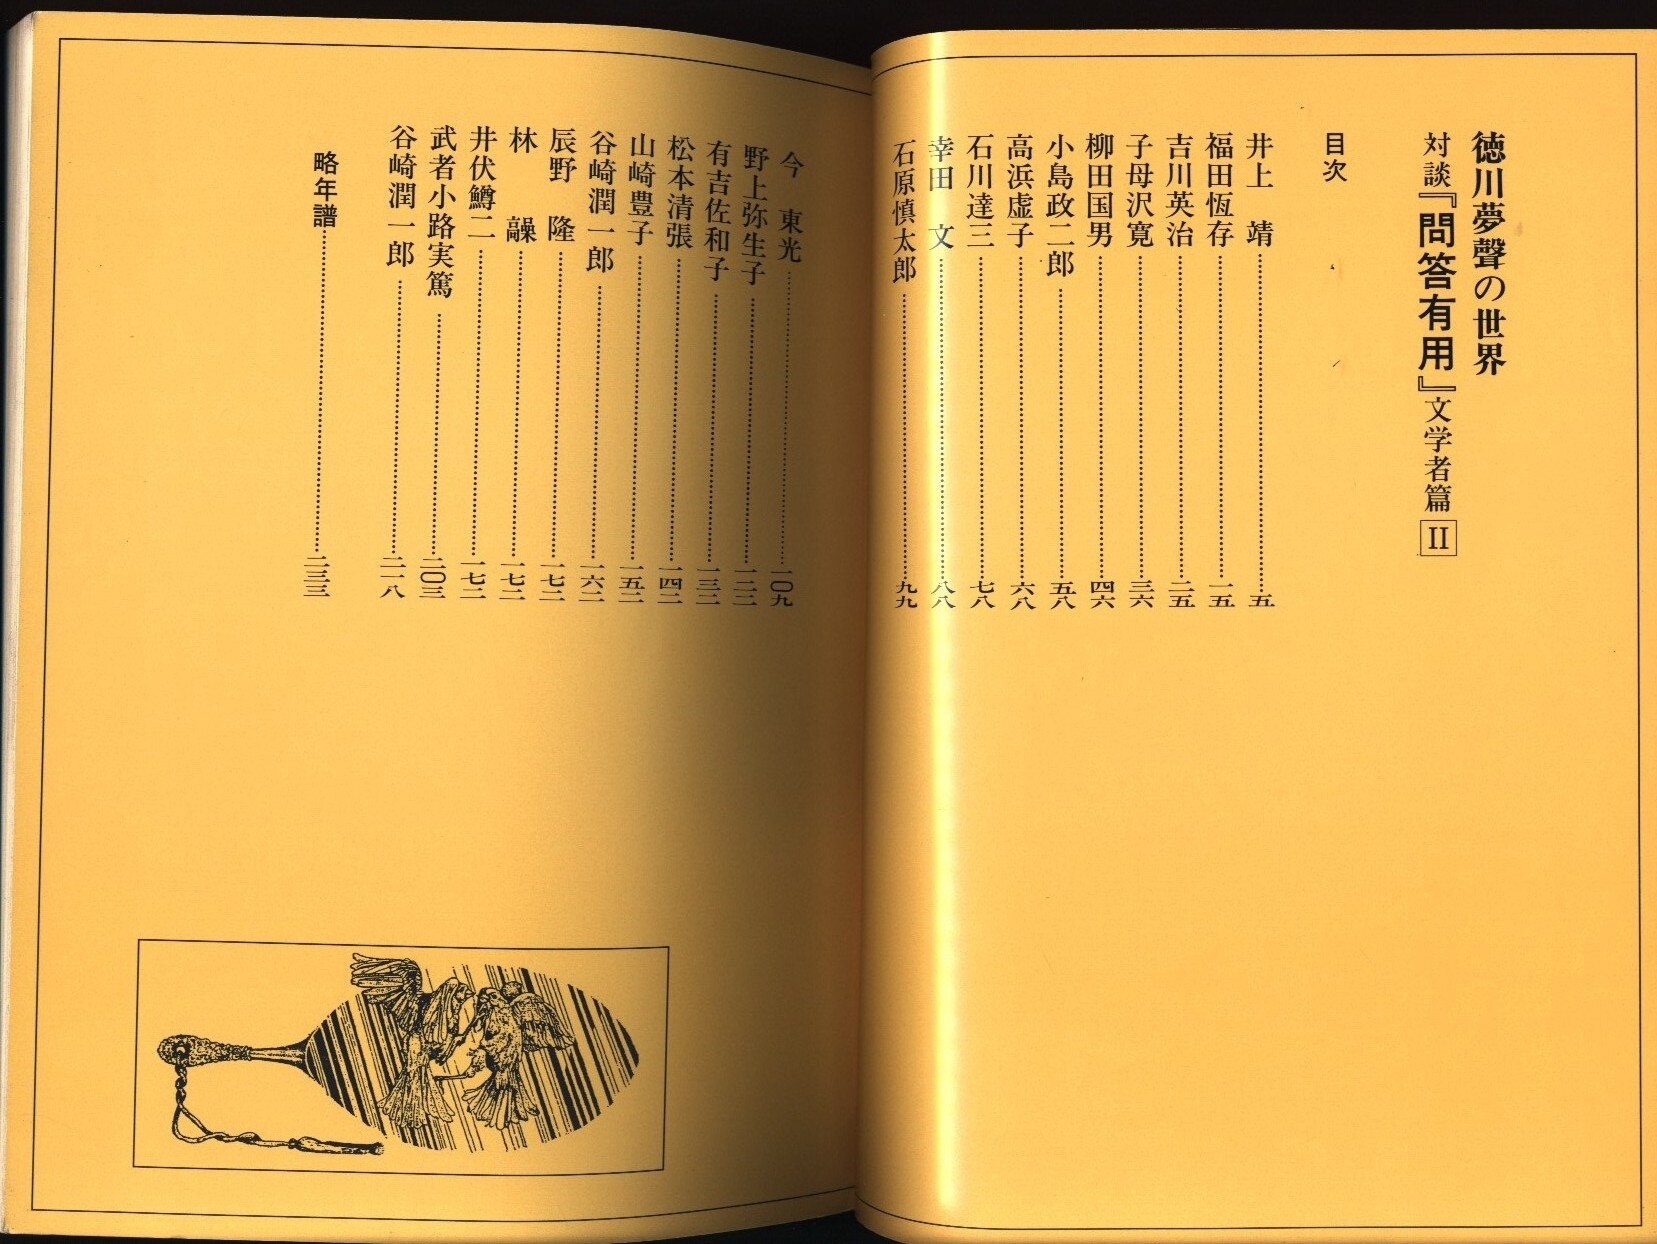 徳川夢聲の世界
対談『問答有用』文学者篇 II
目次
井上 靖……五
福田恆存……一五
吉川英治……二五
子母沢寛……三六
柳田国男……四六
小島政二郎……五八
高浜虚子……六八
石川達三……七八
幸田 文……八八
石原慎太郎……九九
今 東光……一〇九
野上弥生子……一二三
有吉佐和子……一三二
松本清張……一四二
山崎豊子……一五二
谷崎潤一郎……一六二
辰野 隆……一七二
林 髞……一七二
井伏鱒二……一七二
武者小路実篤……二〇三
谷崎潤一郎……二一八
略年譜……二三三